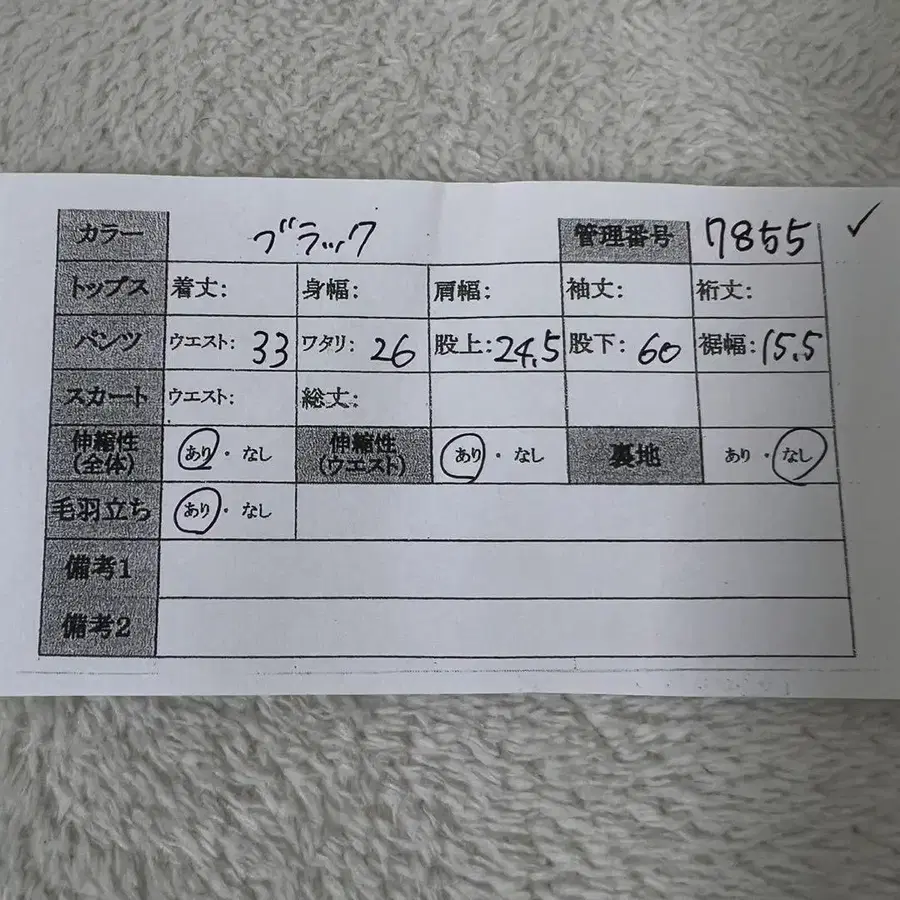 カラー ブラック 管理番号 7855 ✓
トップス 着丈: 身幅: 肩幅: 袖丈: 裄丈:
パンツ ウエスト: 33 ワタリ: 26 股上: 24.5 股下: 60 裾幅: 15.5
スカート ウエスト: 総丈:
伸縮性(全体) あり・なし 伸縮性(ウエスト) あり・なし 裏地 あり・なし
毛羽立ち あり・なし
備考1
備考2